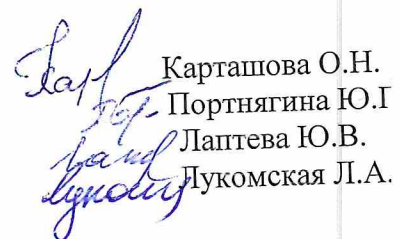 Карташова О.Н.
Портнягина Ю.Г
Лаптева Ю.В.
Лукомская Л.А.